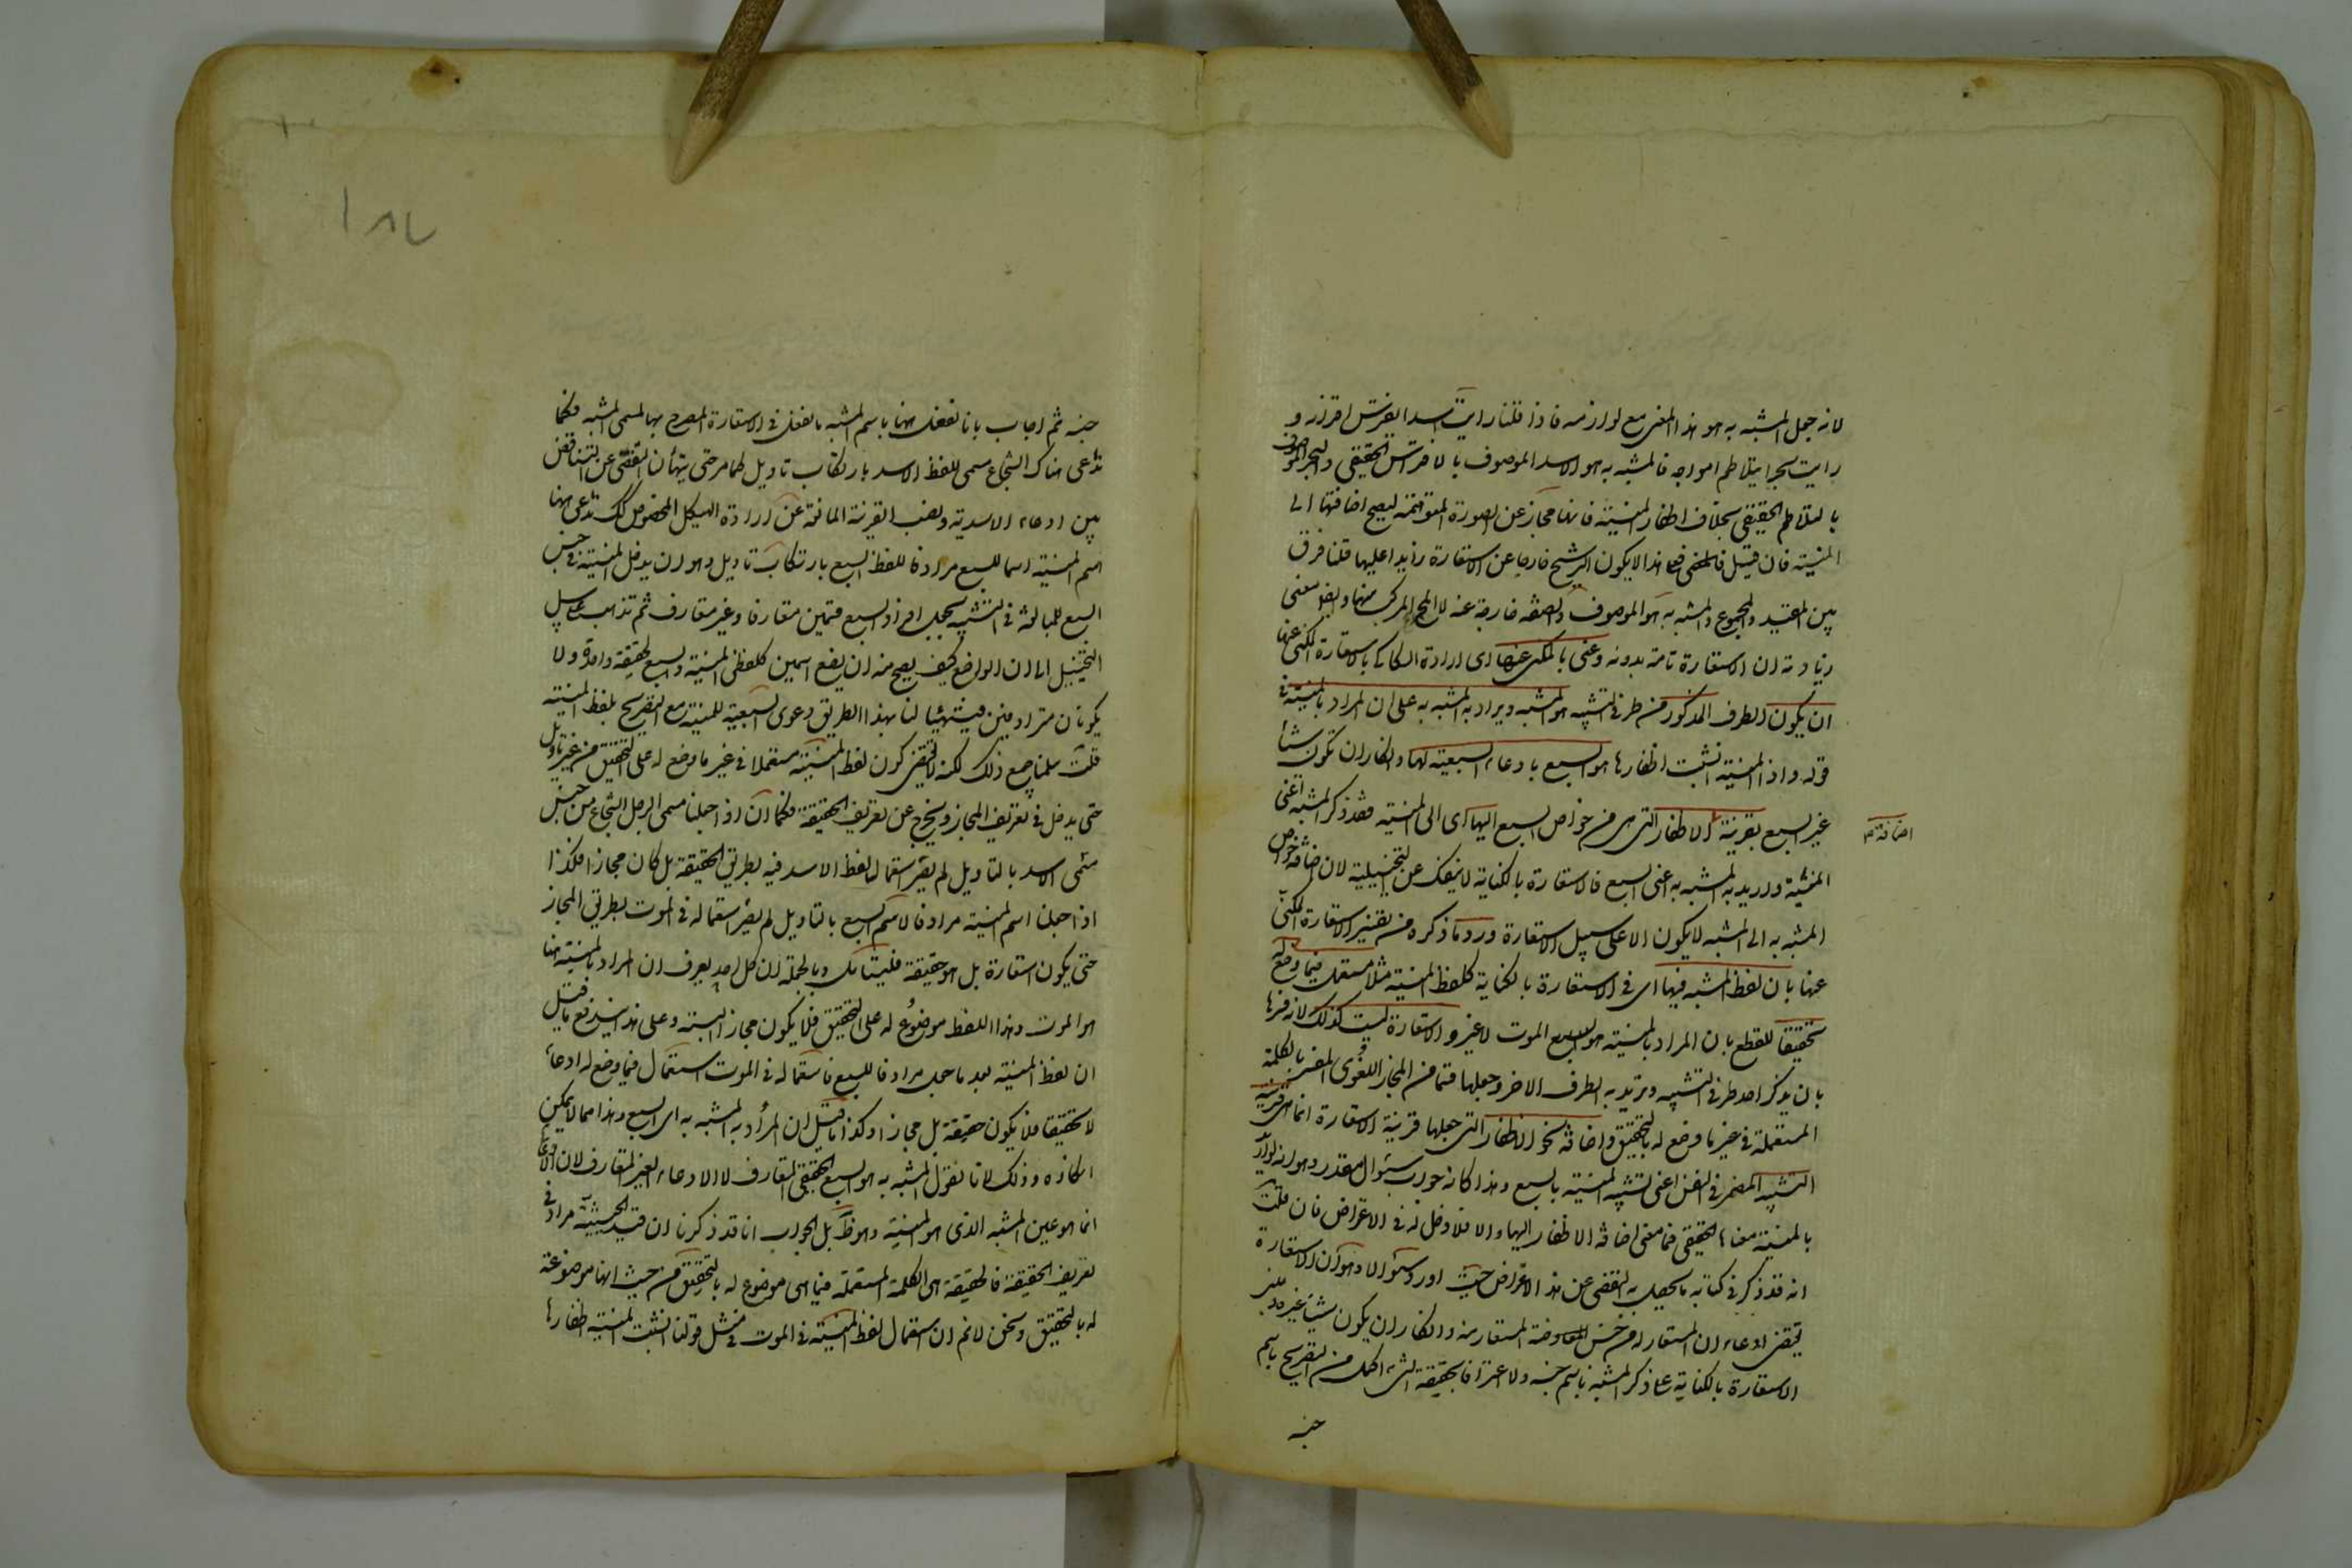 لانه جعل المشبه به هو هذا المعنى مع لوازمه فاذا قلنا رايت اسدا يفترس اقرانه و
رايت بحرا يتلاطم امواجه فالمشبه به هو الاسد الموصوف بالافتراس الحقيقى والبحر الموصوف
بالتلاطم الحقيقى بخلاف اظفار المنية فانها مجاز عن الصورة المتوهمة ليصح اضافتها الى
المنية فان قيل فعلى هذا لا يكون الترشيح خارجا عن الاستعارة زايدا عليها قلنا فرق
بين المقيد والمجموع والمشبه به هو الموصوف والصفة خارجة عنه لا المجموع المركب منهما وايضا معنى
زيادته ان الاستعارة تامة بدونه وعنى بالمكنى عنها اى اراد السكاكى بالاستعارة المكنى عنها
ان يكون الطرف المذكور من طرفى التشبيه هو المشبه ويراد به المشبه به على ان المراد بالمنية فى
قوله واذا المنية انشبت اظفارها هو السبع بادعاء السبعية لها وانكار ان تكون شيأ
غير السبع بقرينة اضافة الاظفار التى هى من خواص السبع اليها اى الى المنية فقد ذكر المشبه اعنى
المنية واريد به المشبه به اعنى السبع فالاستعارة بالكناية لا ينفك عن التخييلية لان اضافة خواص
المشبه به الى المشبه لا يكون الا على سبيل الاستعارة ورد ما ذكره من تفسير الاستعارة المكنى
عنها بان لفظ المشبه فيها اى فى الاستعارة بالكناية كلفظ المنية مثلا مستعمل فيما وضع له
تحقيقا للقطع بان المراد بالمنية هو الموت لا غير والاستعارة ليست كذلك لانه فسرها
بان يذكر احد طرفى التشبيه وتريد به الطرف الاخر وجعلها قسما من المجاز اللغوى المفسر بالكلمة
المستعملة فى غير ما وضع له بالتحقيق واضافة نحو الاظفار التى جعلها قرينة الاستعارة انما هى قرينة
التشبيه المضمر فى النفس اعنى تشبيه المنية بالسبع وهذا كانه جواب سؤال مقدر وهو انه لو اريد
بالمنية معناها الحقيقى فما معنى اضافة الاظفار اليها والا فلا دخل له فى الاعتراض فان قلت
انه قد ذكر فى كتابه ما يحصل به التفصى عن هذا الاعتراض حيث اورد سؤالا وهو ان الاستعارة
تقتضى ادعاء ان المستعار له من جنس المستعار منه وانكار ان يكون شيئا غيره ومبنى
الاستعارة بالكناية على ذكر المشبه باسم جنسه ولا اعتراف بحقيقة الشئ اكمل من التصريح باسم
جنسه
اضافة صح
١٨٧
جنسه ثم اجاب بانا نفعل ههنا باسم المشبه ما نفعل فى الاستعارة المصرح بها بمسمى المشبه فكما
ندعى هناك الشجاع مسمى للفظ الاسد بارتكاب تاويل كما مر حتى يتهيأ ان التفصى عن التناقض
بين ادعاء الاسدية ونصب القرينة المانعة عن ارادة الهيكل المخصوص كذلك ندعى ههنا
اسم المنية اسما للسبع مرادفا للفظ السبع بارتكاب تاويل وهو ان يدخل المنية فى جنس
السبع للمبالغة فى التشبيه بجعل افراد السبع قسمين متعارفا وغير متعارف ثم نذهب على سبيل
التخييل الى ان الواضع كيف يصح منه ان يضع اسمين كلفظى المنية والسبع لحقيقة واحدة ولا
يكونان مترادفين فيتهيأ لنا بهذا الطريق دعوى السبعية للمنية مع التصريح بلفظ المنية
قلت سلمنا جميع ذلك لكنه لا يقتضى كون لفظ المنية مستعملا فى غير ما وضع له على التحقيق من غير تاويل
حتى يدخل فى تعريف المجاز ويخرج عن تعريف الحقيقة فكما ان اذا جعلنا مسمى الرجل الشجاع من جنس
مسمى الاسد بالتاويل لم يصر استعمال لفظ الاسد فيه بطريق الحقيقة بل كان مجازا فكذا
اذا جعلنا اسم المنية مرادفا لاسم السبع بالتاويل لم يصر استعماله فى الموت بطريق المجاز
حتى يكون استعارة بل هو حقيقة فليتأمل وبالجملة ان كل احد يعرف ان المراد بالمنية هنا
هو الموت وهذا اللفظ موضوع له على التحقيق فلا يكون مجازا البتة وعلى هذا يندفع ما قيل
ان لفظ المنية بعد ما جعل مرادفا للسبع فاستعماله فى الموت استعمال فيما وضع له ادعاء
لا تحقيقا فلا يكون حقيقة بل مجازا وكذا ما قيل ان المراد به المشبه به اى السبع وهذا مما لا يمكن
انكاره وذلك لانا نقول المشبه به هو السبع الحقيقى المتعارف لا الادعاء الغير المتعارف لان الادعائى
انما هو عين المشبه الذى هو المنية وهو ظ بل الجواب انا قد ذكرنا ان قيد الحيثية مراد فى
تعريف الحقيقة فالحقيقة هى الكلمة المستعملة فيما هى موضوع له بالتحقيق من حيث انها موضوعة
له بالتحقيق ونحن لا نم ان استعمال لفظ المنية فى الموت فى مثل قولنا انشبت المنية اظفارها